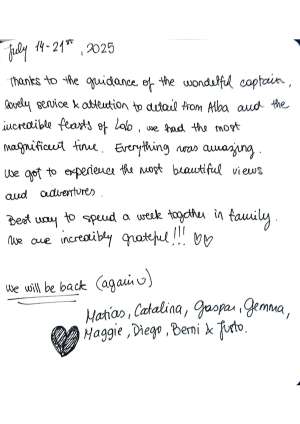 July 14-21st, 2025
Thanks to the guidance of the wondelful captain,
lovely service & attention to detail from Alba and the
incredible feasts of Lolo, we had the most
magnificent time. Everything was amazing.
We got to experience the most beautiful views
and adventures.
Best way to spend a week together in family.
We are incredibly grateful!!! ♡♡
We will be back (again ☺)
Matias, Catalina, Gaspar, Gemma,
Maggie, Diego, Berni & Justo.